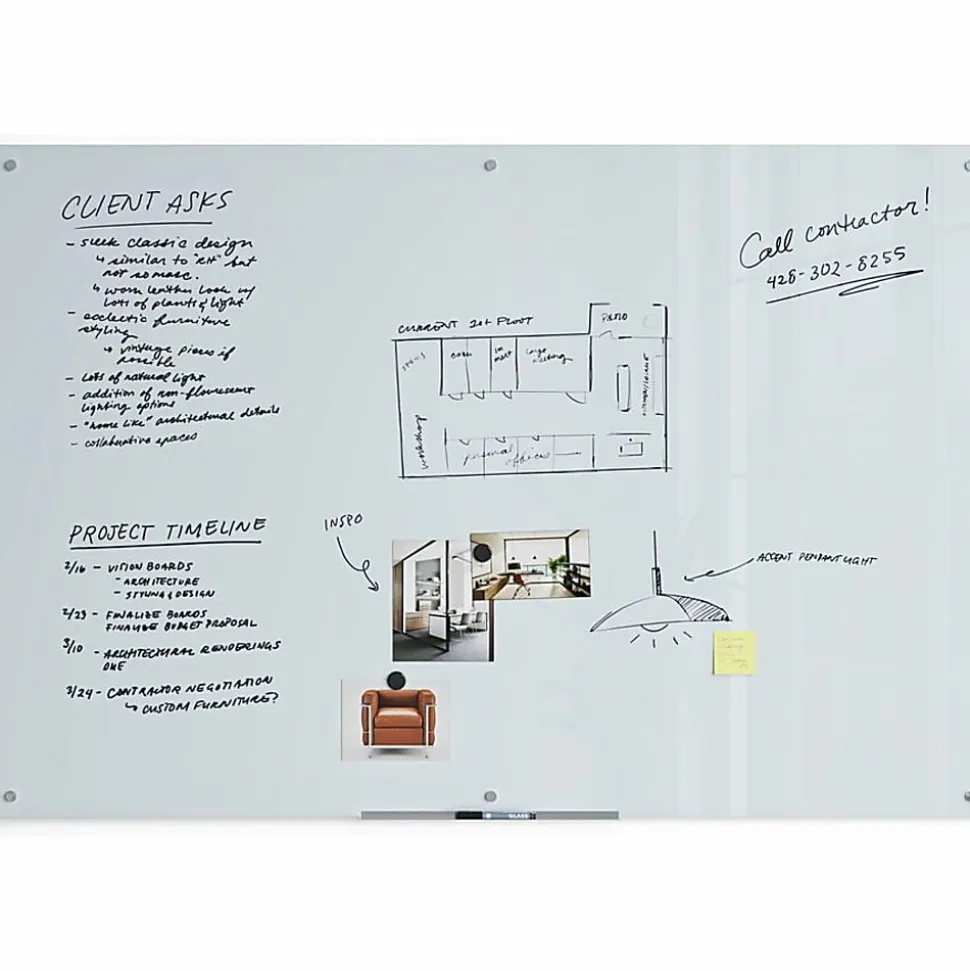 CLIENT ASKS
- sleek classic design
↳ similar to "RH" but
not so masc.
↳ worn leather look w/
lots of plants & light
- ecclectic furniture
styling
↳ vintage pieces if
possible
- lots of natural light
- addition of non-flourescent
lighting options
- "home like" architectural details
- collaborative spaces
Call contractor!
428-302-8255
CURRENT FLOOR
PATIO
large
meeting
workshop
personal
offices
KITCHEN/LOUNGE
PROJECT TIMELINE
2/16 - VISION BOARDS
- ARCHITECTURE
- STYLING & DESIGN
2/23 - FINALIZE BOARDS
FINALIZE BUDGET PROPOSAL
3/10 - ARCHITECTURAL RENDERINGS
DUE
3/24 - CONTRACTOR NEGOTIATION
↳ CUSTOM FURNITURE?
INSPO
ACCENT PENDANT LIGHT
GLASS